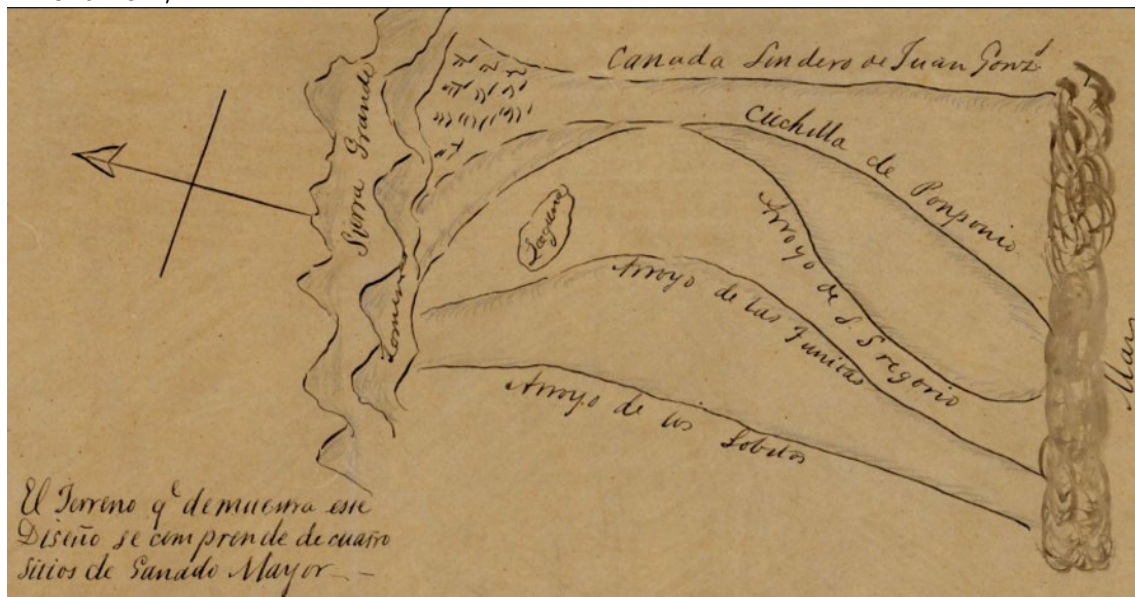 Canada Lindero de Juan Gonz.
Cuchilla de Ponponio
Sierra Grande
Lomeria
Laguna
Arroyo de S. Gregorio
Arroyo de las Tunitas
Arroyo de los Lobitos
Mar
El Terreno q.e demuestra este
Diseño se comprende de cuatro
Sitios de Ganado Mayor —